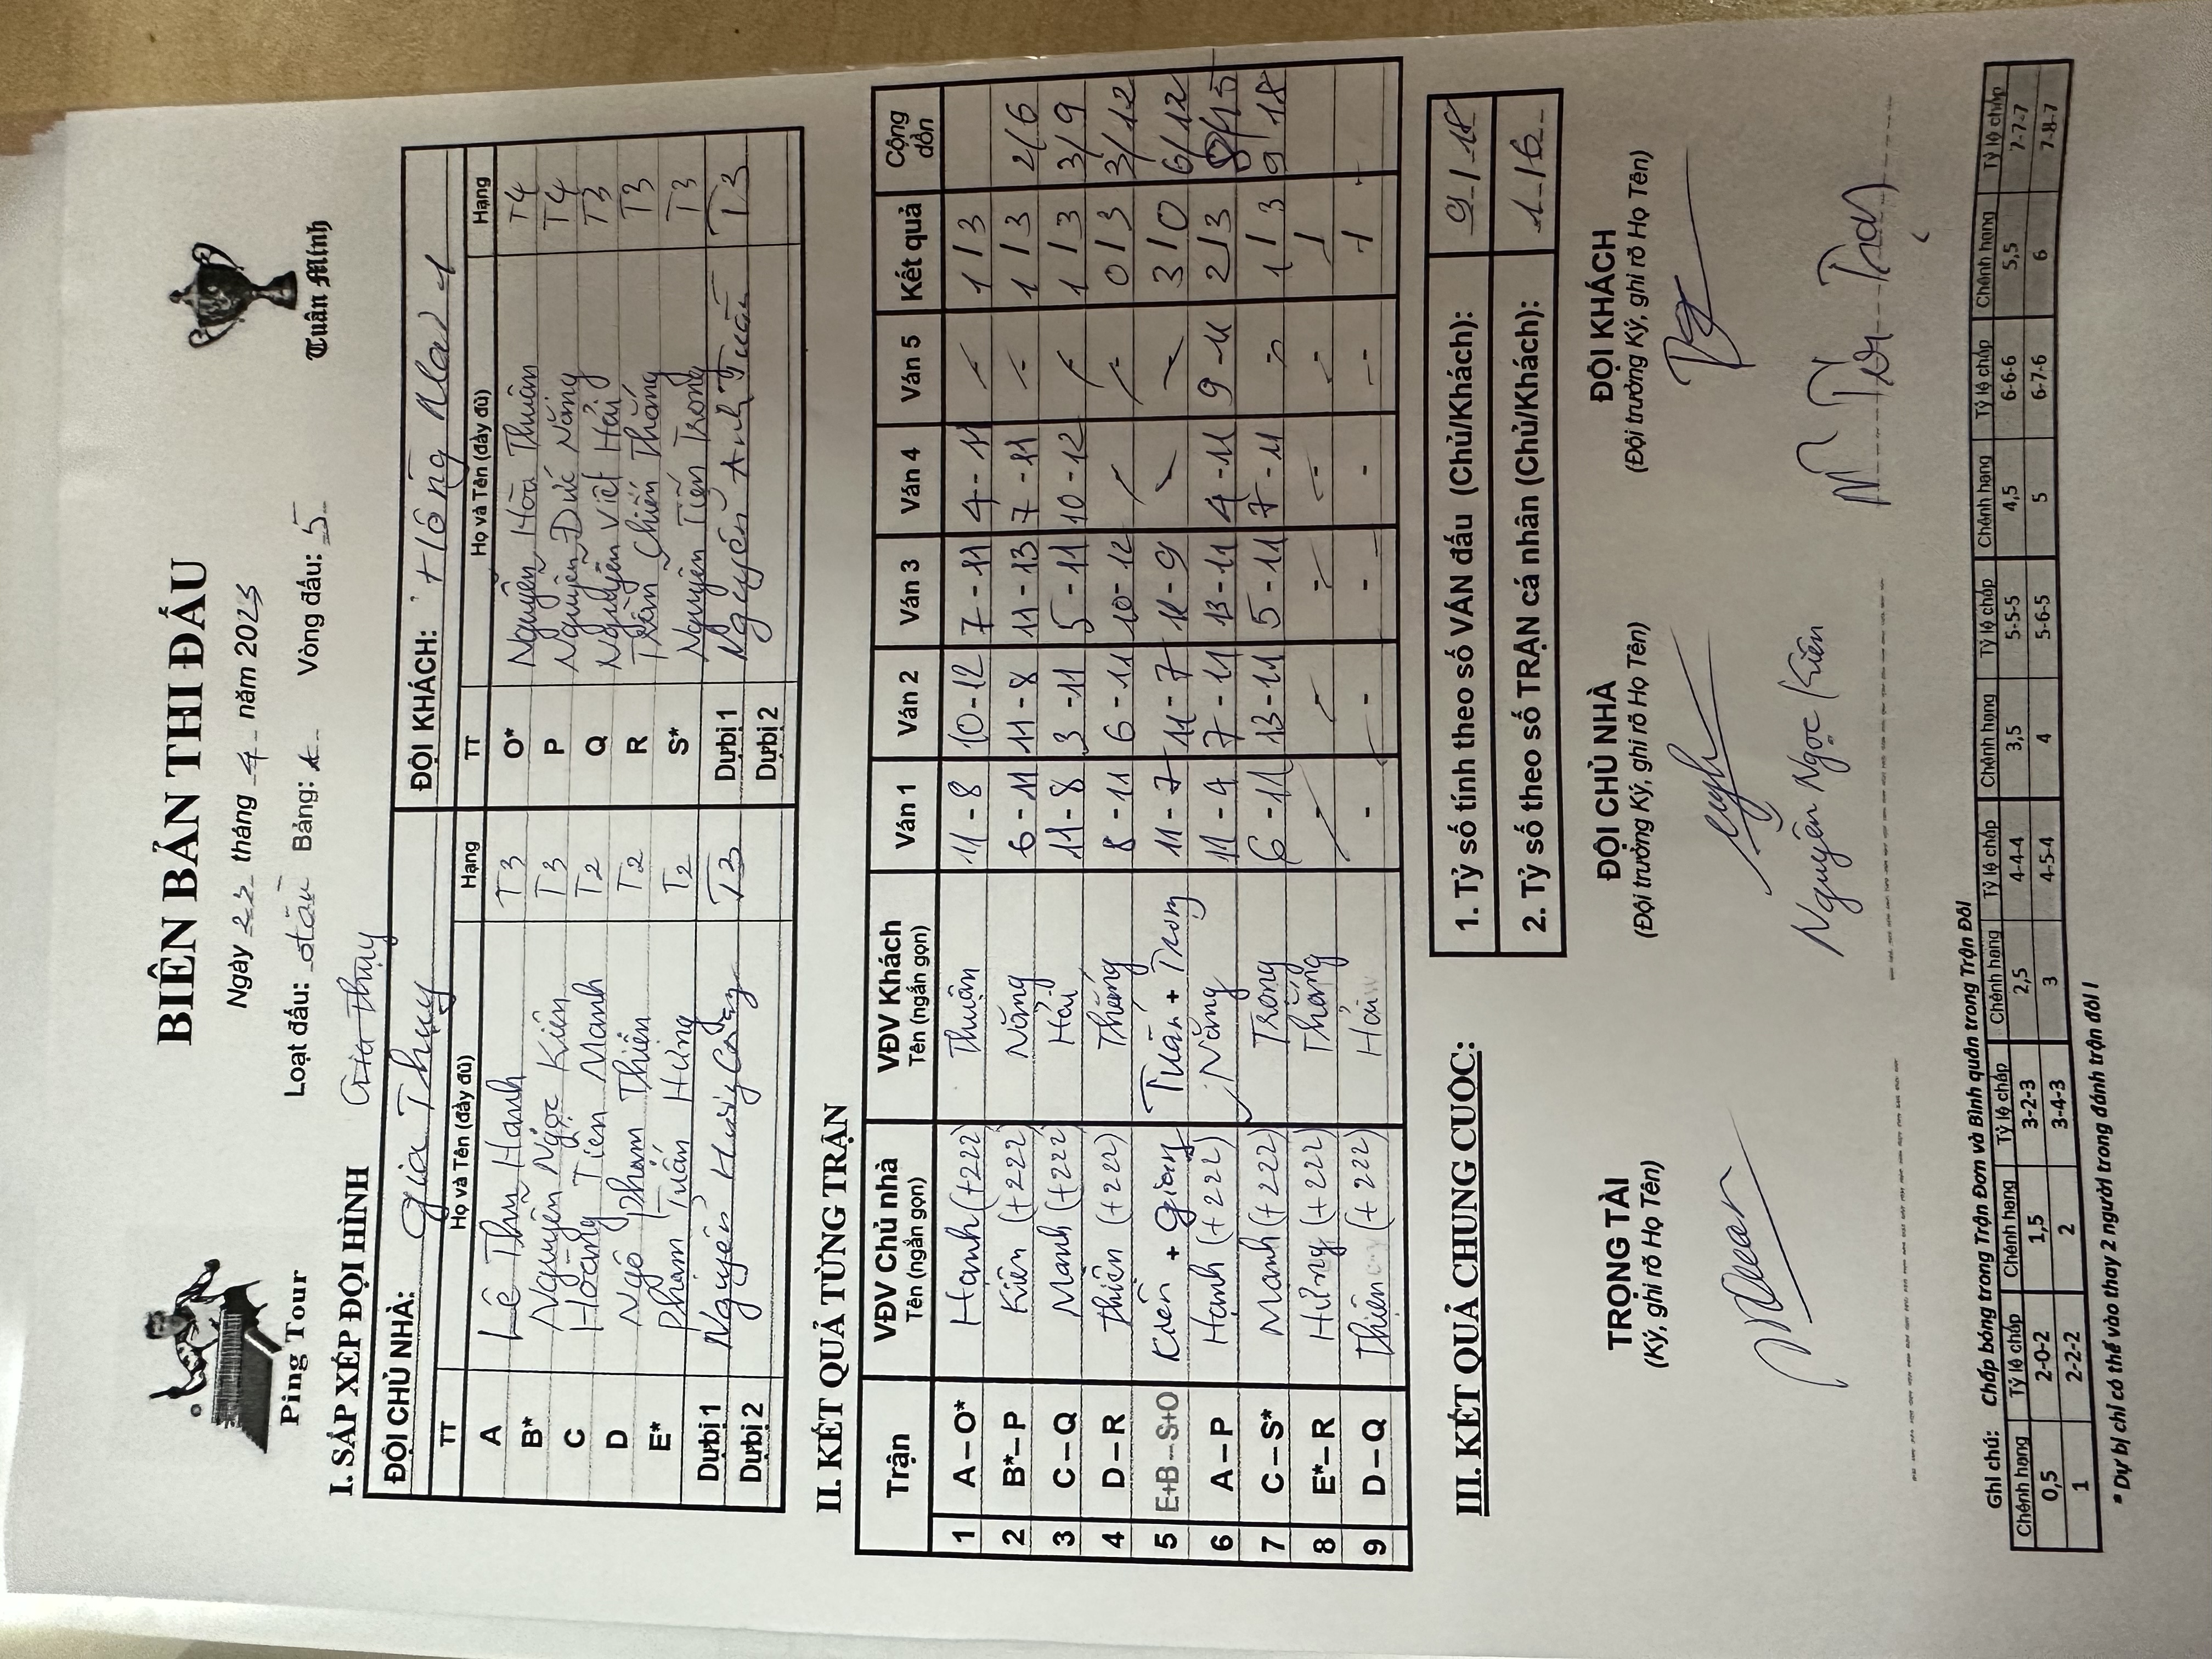 BIÊN BẢN THI ĐẤU
Ping Tour
Tuấn Minh
Ngày 22 tháng 4 năm 2023
Loạt đấu: Bảng: Vòng đấu: 5
I. SẮP XẾP ĐỘI HÌNH
Gia Thụy
ĐỘI CHỦ NHÀ: Gia Thụy ĐỘI KHÁCH: Hồng 1
TT Họ và Tên (đầy đủ) Hạng TT Họ và Tên (đầy đủ) Hạng
A Lê Thu Hạnh T3 O* Nguyễn Hòa Thuận T4
B* Nguyễn Ngọc Kiên T3 P Nguyễn Đức Năng T4
C Hoàng Tiến Mạnh T2 Q Nguyễn Viết Hải T3
D Ngô Phạm Thiên T2 R Trần Chiến Thắng T3
E* Phạm Tuấn Hưng T2 S* Nguyễn Tiến Trọng T3
Dự bị 1 Nguyễn T3 Dự bị 1 Nguyễn Anh Tuấn T3
Dự bị 2 Dự bị 2
II. KẾT QUẢ TỪNG TRẬN
Trận VĐV Chủ nhà Tên (ngắn gọn) VĐV Khách Tên (ngắn gọn) Ván 1 Ván 2 Ván 3 Ván 4 Ván 5 Kết quả Cộng dồn
1 A – O* Hạnh (+222) Thuận 11 - 8 10 - 12 7 - 11 4 - 11 - 1 / 3
2 B* – P Kiên (+222) Năng 6 - 11 11 - 8 11 - 13 7 - 11 - 1 / 3 2/6
3 C – Q Mạnh (+222) Hải 11 - 8 3 - 11 5 - 11 10 - 12 - 1 / 3 3/9
4 D – R Thiên (+222) Thắng 8 - 11 6 - 11 10 - 12 - - 0 / 3 3/12
5 E+B – S+O Kiên + Giang Tuấn + Trọng 11 - 7 11 - 7 11 - 9 - - 3 / 0 6/12
6 A – P Hạnh (+222) Năng 11 - 4 7 - 11 13 - 11 4 - 11 9 - 11 2 / 3 8/15
7 C – S* Mạnh (+222) Trọng 6 - 11 13 - 11 5 - 11 7 - 11 - 1 / 3 9/18
8 E* – R Hưng (+222) Thắng - - - - - /
9 D – Q Thiên (+222) Hải - - - - - /
III. KẾT QUẢ CHUNG CUỘC:
1. Tỷ số tính theo số VÁN đấu (Chủ/Khách): 9 / 18
2. Tỷ số theo số TRẬN cá nhân (Chủ/Khách): 1 / 6
TRỌNG TÀI ĐỘI CHỦ NHÀ ĐỘI KHÁCH
(Ký, ghi rõ Họ Tên) (Đội trưởng Ký, ghi rõ Họ Tên) (Đội trưởng Ký, ghi rõ Họ Tên)
Nguyễn Ngọc Kiên
Ghi chú: Chấp bóng trong Trận Đơn và Bình quân trong Trận Đôi
Chênh hạng Tỷ lệ chấp Chênh hạng Tỷ lệ chấp Chênh hạng Tỷ lệ chấp Chênh hạng Tỷ lệ chấp Chênh hạng Tỷ lệ chấp Chênh hạng Tỷ lệ chấp
0,5 2-0-2 1,5 3-2-3 2,5 4-4-4 3,5 5-5-5 4,5 6-6-6 5,5 7-7-7
1 2-2-2 2 3-4-3 3 4-5-4 4 5-6-5 5 6-7-6 6 7-8-7
* Dự bị chỉ có thể vào thay 2 người trong đánh trận đôi !